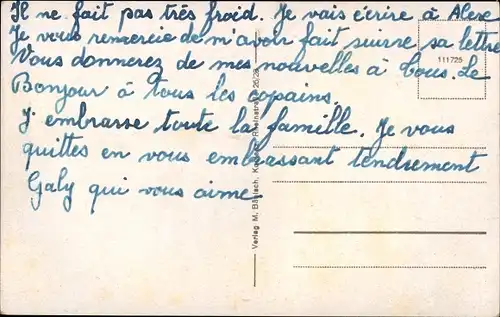 Il ne fait pas très froid. Je vais écrire à Alex
Je vous remercie de m'avoir fait suivre sa lettre
Vous donnerez de mes nouvelles à tous. Le
Bonjour à tous les copains.
J'embrasse toute la famille. Je vous
quittes en vous embrassant tendrement
Galy qui vous aime
111725
Verlag M. Bartsch, Rheinstraße 26/28